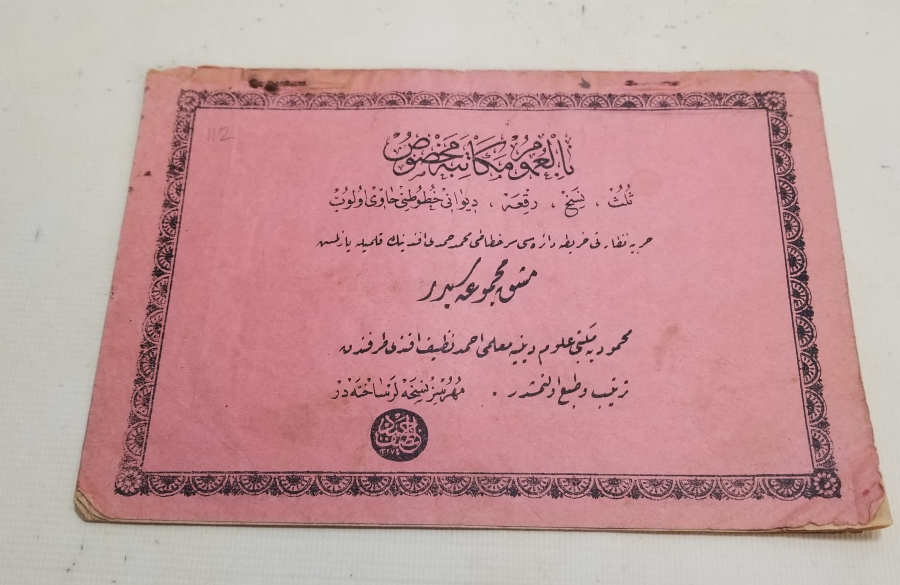 112
بالعموم مكاتبه مخصوص
ثلث ، نسخ ، رقعه ، ديوانى خطوطنى حاوى اولوب
حربيه نظارتى خريطه دائره‌سى سر خطاطى محمد حمدى افندينك قلميله يازلمش
مشق مجموعه سيدر
محموديه مكتبى علوم دينيه معلمى احمد نظيف افندى طرفندن
ترتيب وطبع اولنمشدر .
مهرسز نسخه لر ساخته در